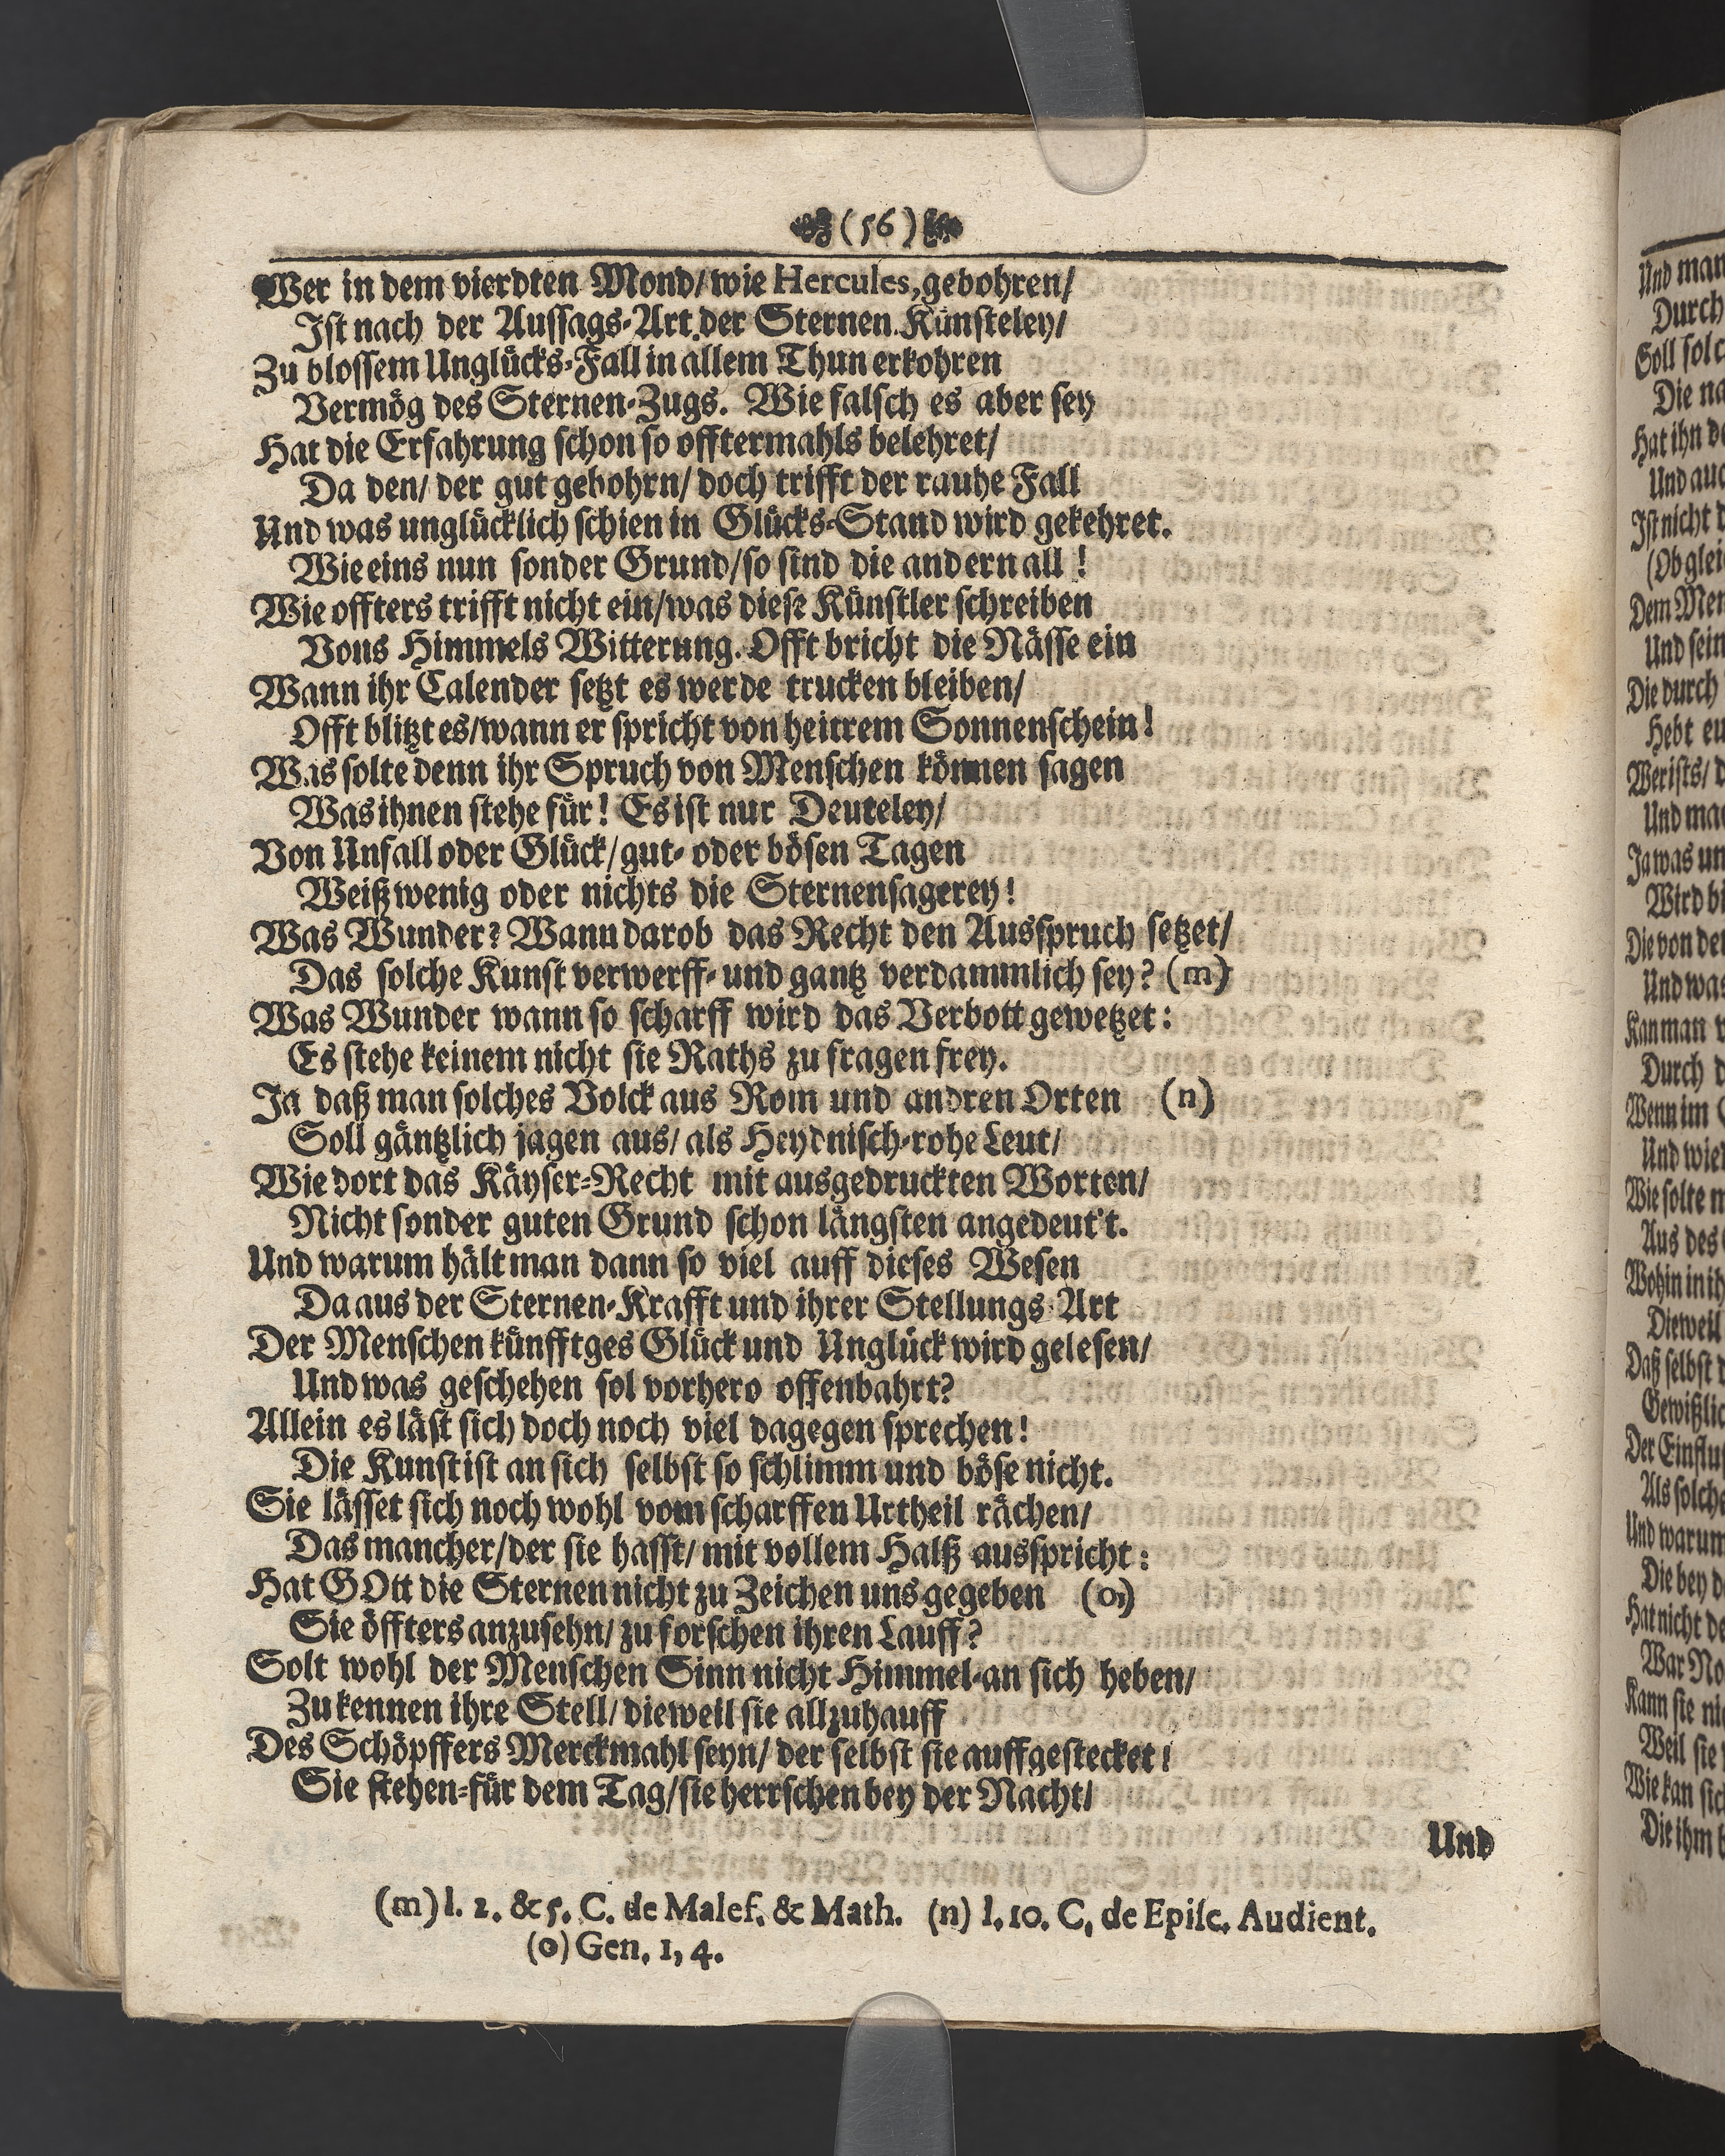 (56)
Wer in dem vierdten Mond/ wie Hercules, gebohren/
Ist nach der Aussags-Art der Sternen Künsteley/
Zu blossem Unglücks-Fall in allem Thun erkohren
Vermög des Sternen-Zugs. Wie falsch es aber sey
Hat die Erfahrung schon so offtermahls belehret/
Da den/ der gut gebohrn/ doch trifft der rauhe Fall
Und was unglücklich schien in Glücks-Stand wird gekehret.
Wie eins nun sonder Grund/ so sind die andern all!
Wie offters trifft nicht ein/ was diese Künstler schreiben
Vons Himmels Witterung. Offt bricht die Nässe ein
Wann ihr Calender setzt es werde trucken bleiben/
Offt blitzt es/ wann er spricht von heitrem Sonnenschein!
Was solte denn ihr Spruch von Menschen können sagen
Was ihnen stehe für! Es ist nur Deuteley/
Von Unfall oder Glück/ gut- oder bösen Tagen
Weiß wenig oder nichts die Sternensagerey!
Was Wunder? Wann darob das Recht den Ausspruch setzet/
Das solche Kunst verwerff- und gantz verdammlich sey? (m)
Was Wunder wann so scharff wird das Verbott gewetzet:
Es stehe keinem nicht sie Raths zu fragen frey.
Ja daß man solches Volck aus Rom und andren Orten (n)
Soll gäntzlich jagen aus/ als Heydnisch-rohe Leut/
Wie dort das Käyser-Recht mit ausgedruckten Worten/
Nicht sonder guten Grund schon längsten angedeut't.
Und warum hält man dann so viel auff dieses Wesen
Da aus der Sternen-Krafft und ihrer Stellungs-Art
Der Menschen künfftges Glück und Unglück wird gelesen/
Und was geschehen sol vorhero offenbahrt?
Allein es läst sich doch noch viel dagegen sprechen!
Die Kunst ist an sich selbst so schlimm und böse nicht.
Sie lässet sich noch wohl vom scharffen Urtheil rächen/
Das mancher/ der sie hasst/ mit vollem Halß ausspricht:
Hat GOtt die Sternen nicht zu Zeichen uns gegeben (o)
Sie öffters anzusehn/ zu forschen ihren Lauff?
Solt wohl der Menschen Sinn nicht Himmel-an sich heben/
Zu kennen ihre Stell/ dieweil sie allzuhauff
Des Schöpffers Merckmahl seyn/ der selbst sie auffgestecket!
Sie stehen-für dem Tag/ sie herrschen bey der Nacht/
Und
(m) l. 2. & 5. C. de Malef. & Math. (n) l. 10. C. de Episc. Audient.
(o) Gen. 1, 4.